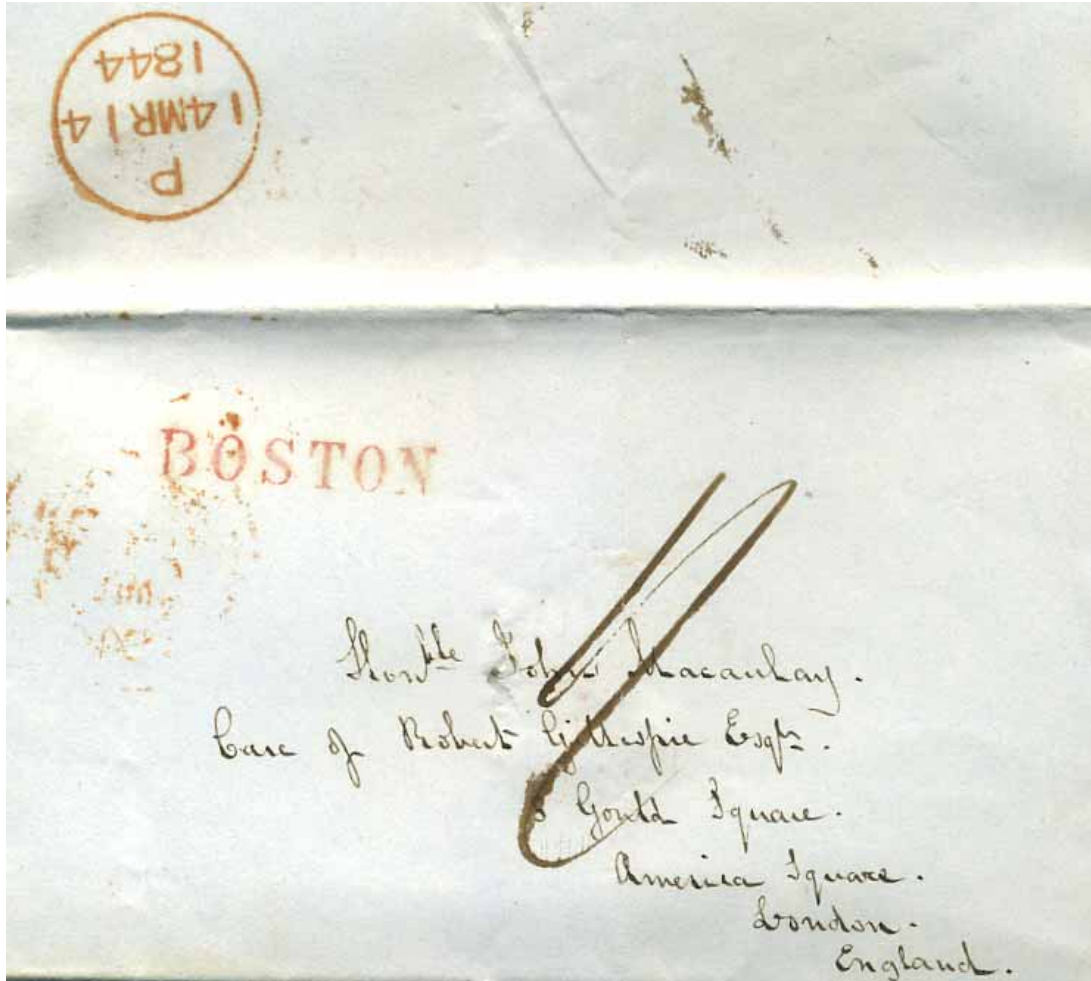 P
14MR14
1844
BOSTON
Honble John Macaulay.
Care of Robert Gillespie Esqre.
Gould Square.
America Square.
London.
England.